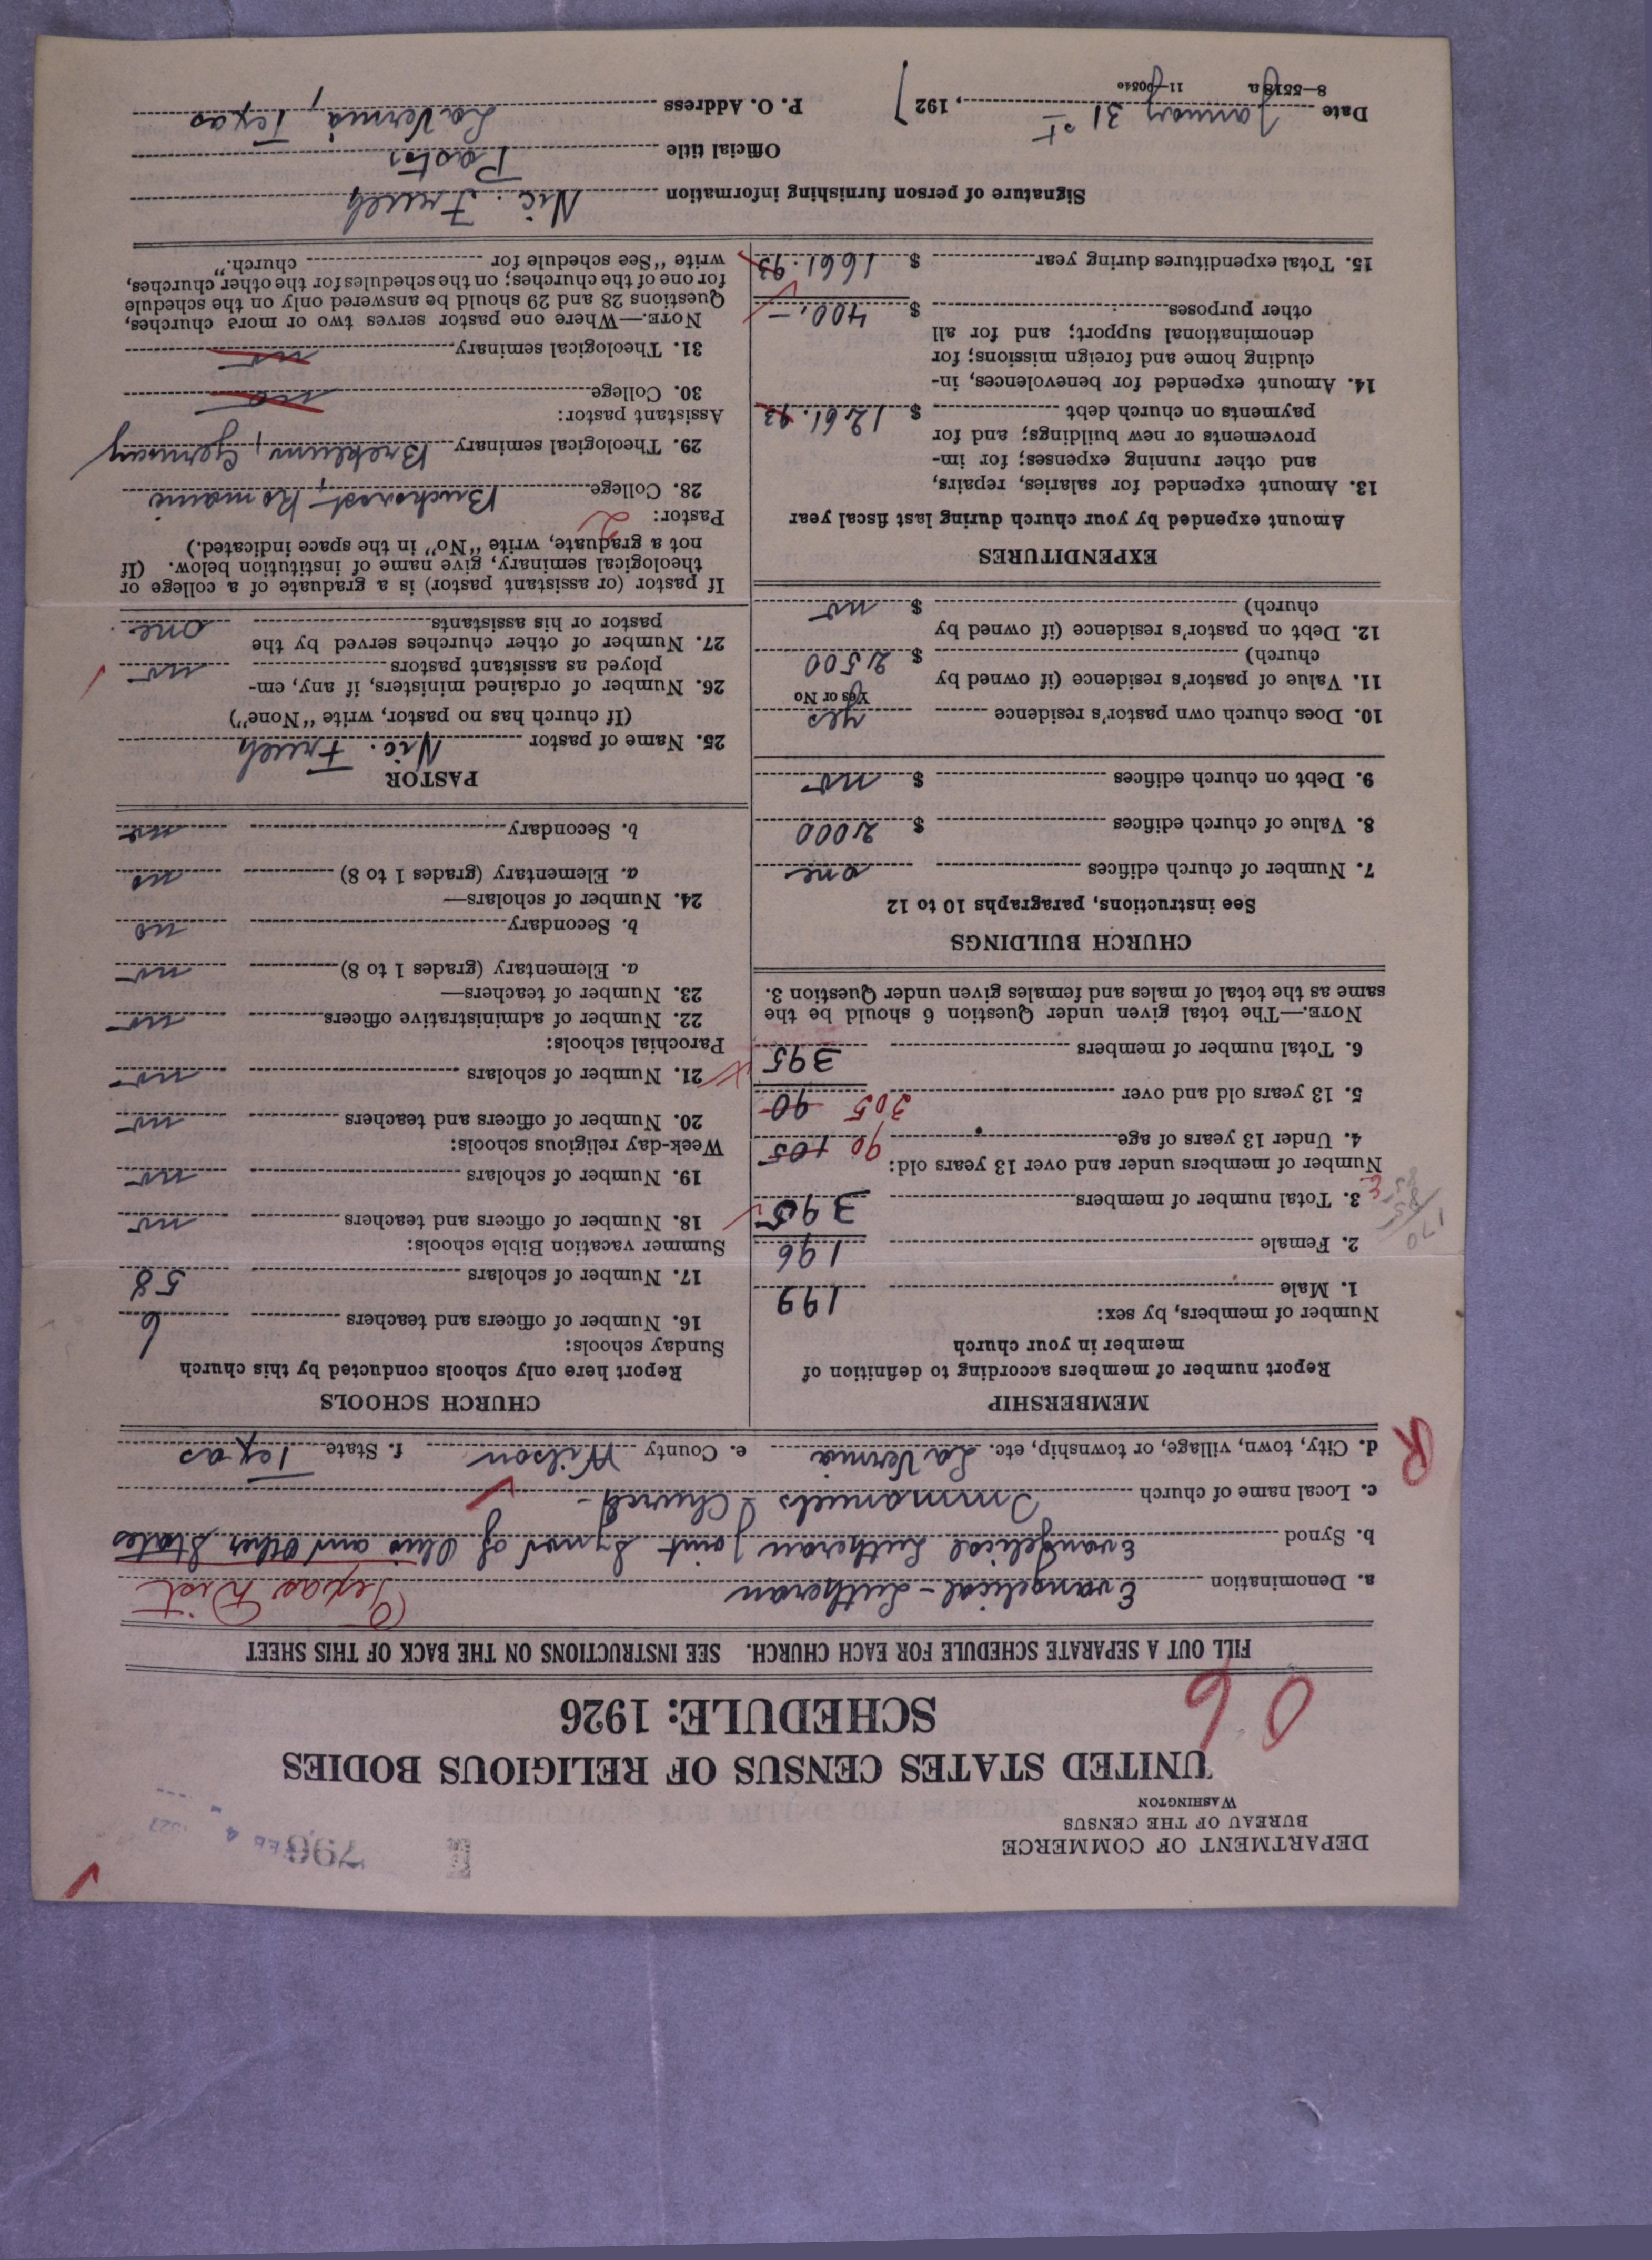 DEPARTMENT OF COMMERCE
BUREAU OF THE CENSUS
WASHINGTON
UNITED STATES CENSUS OF RELIGIOUS BODIES
SCHEDULE: 1926
06
FILL OUT A SEPARATE SCHEDULE FOR EACH CHURCH. SEE INSTRUCTIONS ON THE BACK OF THIS SHEET
a. Denomination Evangelical-Lutheran Texas Dist
b. Synod Evangelical Lutheran Joint Synod of Ohio and Other States
c. Local name of church Immanuels Church
R
d. City, town, village, or township, etc. La Vernia e. County Wilson f. State Texas
MEMBERSHIP
Report number of members according to definition of
member in your church
Number of members, by sex:
1. Male 199
2. Female 196
3. Total number of members 395
Number of members under and over 13 years old:
4. Under 13 years of age 90 105
5. 13 years old and over 305 90
6. Total number of members 395
NOTE.—The total given under Question 6 should be the
same as the total of males and females given under Question 3.
CHURCH BUILDINGS
See instructions, paragraphs 10 to 12
7. Number of church edifices one
8. Value of church edifices $ 2000
9. Debt on church edifices $ no
10. Does church own pastor's residence yes
Yes or No
11. Value of pastor's residence (if owned by
church) $ 2500
12. Debt on pastor's residence (if owned by
church) $ no
EXPENDITURES
Amount expended by your church during last fiscal year
13. Amount expended for salaries, repairs,
and other running expenses; for im-
provements or new buildings; and for
payments on church debt $ 1261.93
14. Amount expended for benevolences, in-
cluding home and foreign missions; for
denominational support; and for all
other purposes $ 400.-
15. Total expenditures during year $ 1661.93
CHURCH SCHOOLS
Report here only schools conducted by this church
Sunday schools:
16. Number of officers and teachers 6
17. Number of scholars 58
Summer vacation Bible schools:
18. Number of officers and teachers no
19. Number of scholars no
Week-day religious schools:
20. Number of officers and teachers no
21. Number of scholars no
Parochial schools:
22. Number of administrative officers no
23. Number of teachers—
a. Elementary (grades 1 to 8) no
b. Secondary no
24. Number of scholars—
a. Elementary (grades 1 to 8) no
b. Secondary no
PASTOR
25. Name of pastor Nic. Frueh
(If church has no pastor, write "None")
26. Number of ordained ministers, if any, em-
ployed as assistant pastors no
27. Number of other churches served by the
pastor or his assistants one.
If pastor (or assistant pastor) is a graduate of a college or
theological seminary, give name of institution below. (If
not a graduate, write "No" in the space indicated.)
Pastor: 2
28. College Bucharest, Romania
29. Theological seminary Breklum, Germany
Assistant pastor:
30. College no
31. Theological seminary no
NOTE.—Where one pastor serves two or more churches,
Questions 28 and 29 should be answered only on the schedule
for one of the churches; on the schedules for the other churches,
write "See schedule for church."
Signature of person furnishing information Nic. Frueh
Official title Pastor
Date January 31st, 1927 P. O. Address La Vernia, Texas
8—5518a